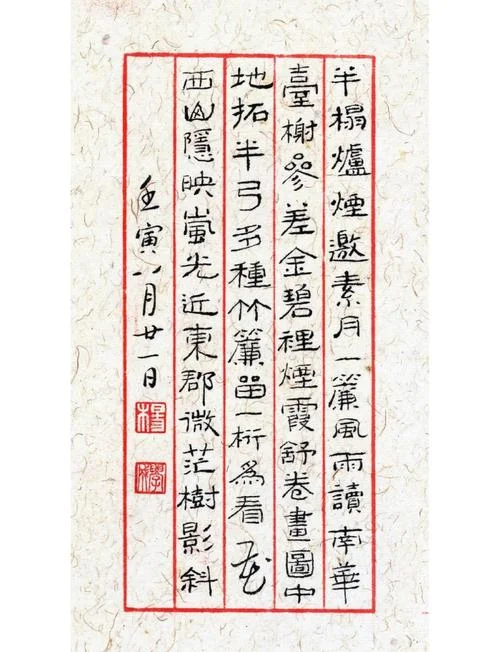 半榻爐煙邀素月一簾風雨讀南華
臺榭參差金碧裡煙霞舒卷畫圖中
地拓半弓多種竹簾留一桁為看花
西山隱映嵐光近東郡微茫樹影斜
壬寅八月廿一日